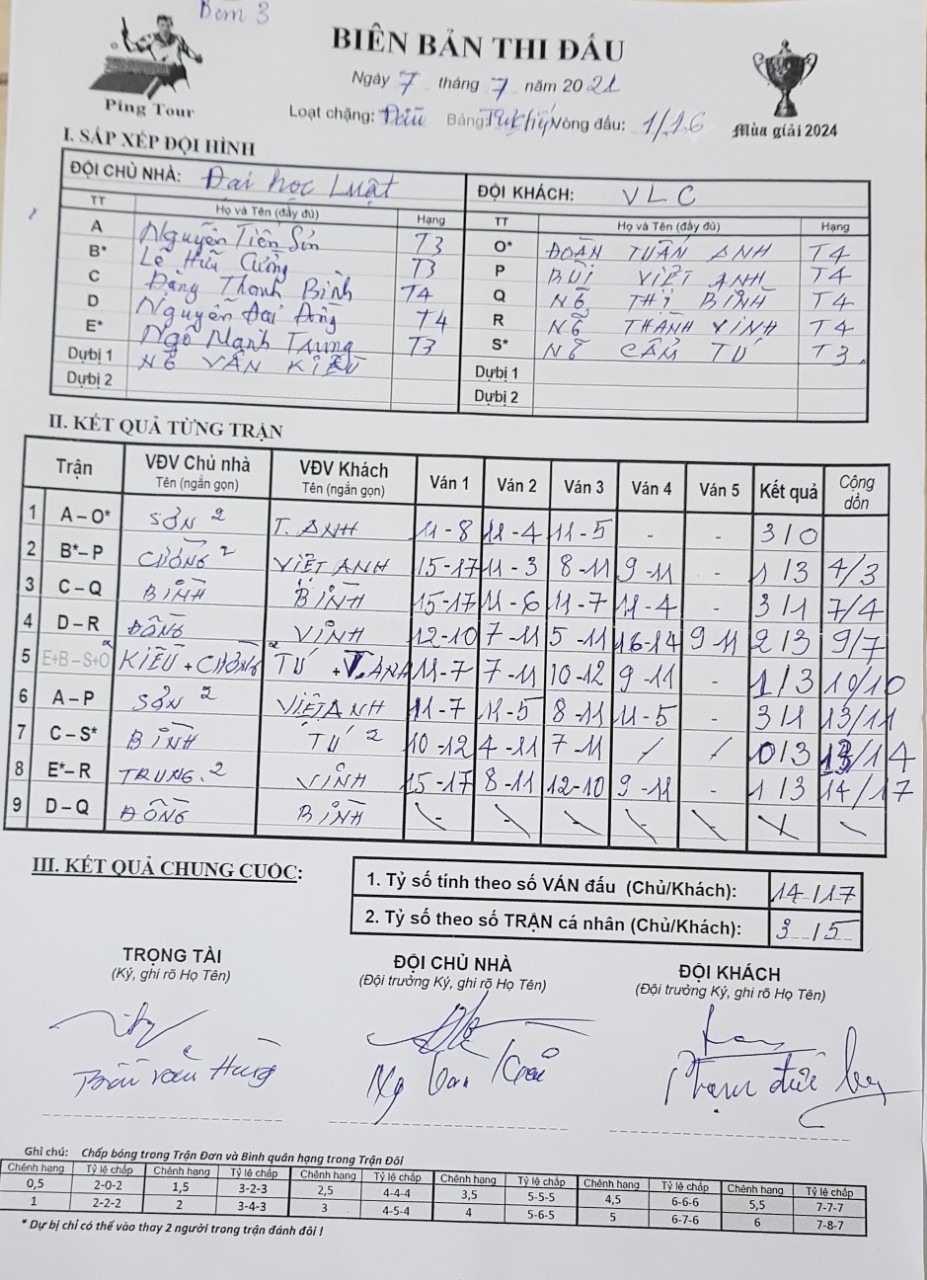 Bàn 3
BIÊN BẢN THI ĐẤU
Ngày 7 tháng 7 năm 2024
Ping Tour
Loạt chặng: Bảng Vòng đấu: 1/16
Mùa giải 2024
I. SẮP XẾP ĐỘI HÌNH
ĐỘI CHỦ NHÀ: Đại học Luật ĐỘI KHÁCH: VLC
TT Họ và Tên (đầy đủ) Hạng TT Họ và Tên (đầy đủ) Hạng
A Nguyễn Tiến Sơn T3 O* ĐOÀN TUẤN ANH T4
B* Lê Hữu Cường T3 P BÙI VIỆT ANH T4
C Đặng Thanh Bình T4 Q NG̃ THỊ BÌNH T4
D Nguyễn Đại Đồng T4 R NG̃ THÀNH VINH T4
E* Ngô Mạnh Trung T3 S* NG̃ CẨM TÚ T3
Dự bị 1 NG̃ VĂN KIỀU Dự bị 1
Dự bị 2 Dự bị 2
II. KẾT QUẢ TỪNG TRẬN
Trận VĐV Chủ nhà Tên (ngắn gọn) VĐV Khách Tên (ngắn gọn) Ván 1 Ván 2 Ván 3 Ván 4 Ván 5 Kết quả Cộng dồn
1 A – O* SƠN 2 T. ANH 11-8 11-4 11-5 - - 3/0
2 B* – P CƯỜNG 2 VIỆT ANH 15-17 11-3 8-11 9-11 - 1/3 4/3
3 C – Q BÌNH BÌNH 15-17 11-6 11-7 11-4 - 3/1 7/4
4 D – R ĐỒNG VINH 12-10 7-11 5-11 16-14 9 11 2/3 9/7
5 E+B – S+O KIỀU + CƯỜNG 2 TÚ + V.ANH 11-7 7-11 10-12 9-11 - 1/3 10/10
6 A – P SƠN 2 VIỆT ANH 11-7 11-5 8-11 11-5 - 3/1 13/11
7 C – S* BÌNH TÚ 2 10-12 4-11 7-11 / / 0/3 13/14
8 E* – R TRUNG. 2 VINH 15-17 8-11 12-10 9-11 - 1/3 14/17
9 D – Q ĐỒNG BÌNH
III. KẾT QUẢ CHUNG CUỘC:
1. Tỷ số tính theo số VÁN đấu (Chủ/Khách): 14/17
2. Tỷ số theo số TRẬN cá nhân (Chủ/Khách): 3/5
TRỌNG TÀI ĐỘI CHỦ NHÀ ĐỘI KHÁCH
(Ký, ghi rõ Họ Tên) (Đội trưởng Ký, ghi rõ Họ Tên) (Đội trưởng Ký, ghi rõ Họ Tên)
Trần Văn Hùng Ng Van Kiều Phạm đức
Ghi chú: Chấp bóng trong Trận Đơn và Bình quân hạng trong Trận Đôi
Chênh hạng Tỷ lệ chấp Chênh hạng Tỷ lệ chấp Chênh hạng Tỷ lệ chấp Chênh hạng Tỷ lệ chấp Chênh hạng Tỷ lệ chấp Chênh hạng Tỷ lệ chấp
0,5 2-0-2 1,5 3-2-3 2,5 4-4-4 3,5 5-5-5 4,5 6-6-6 5,5 7-7-7
1 2-2-2 2 3-4-3 3 4-5-4 4 5-6-5 5 6-7-6 6 7-8-7
* Dự bị chỉ có thể vào thay 2 người trong trận đánh đôi !